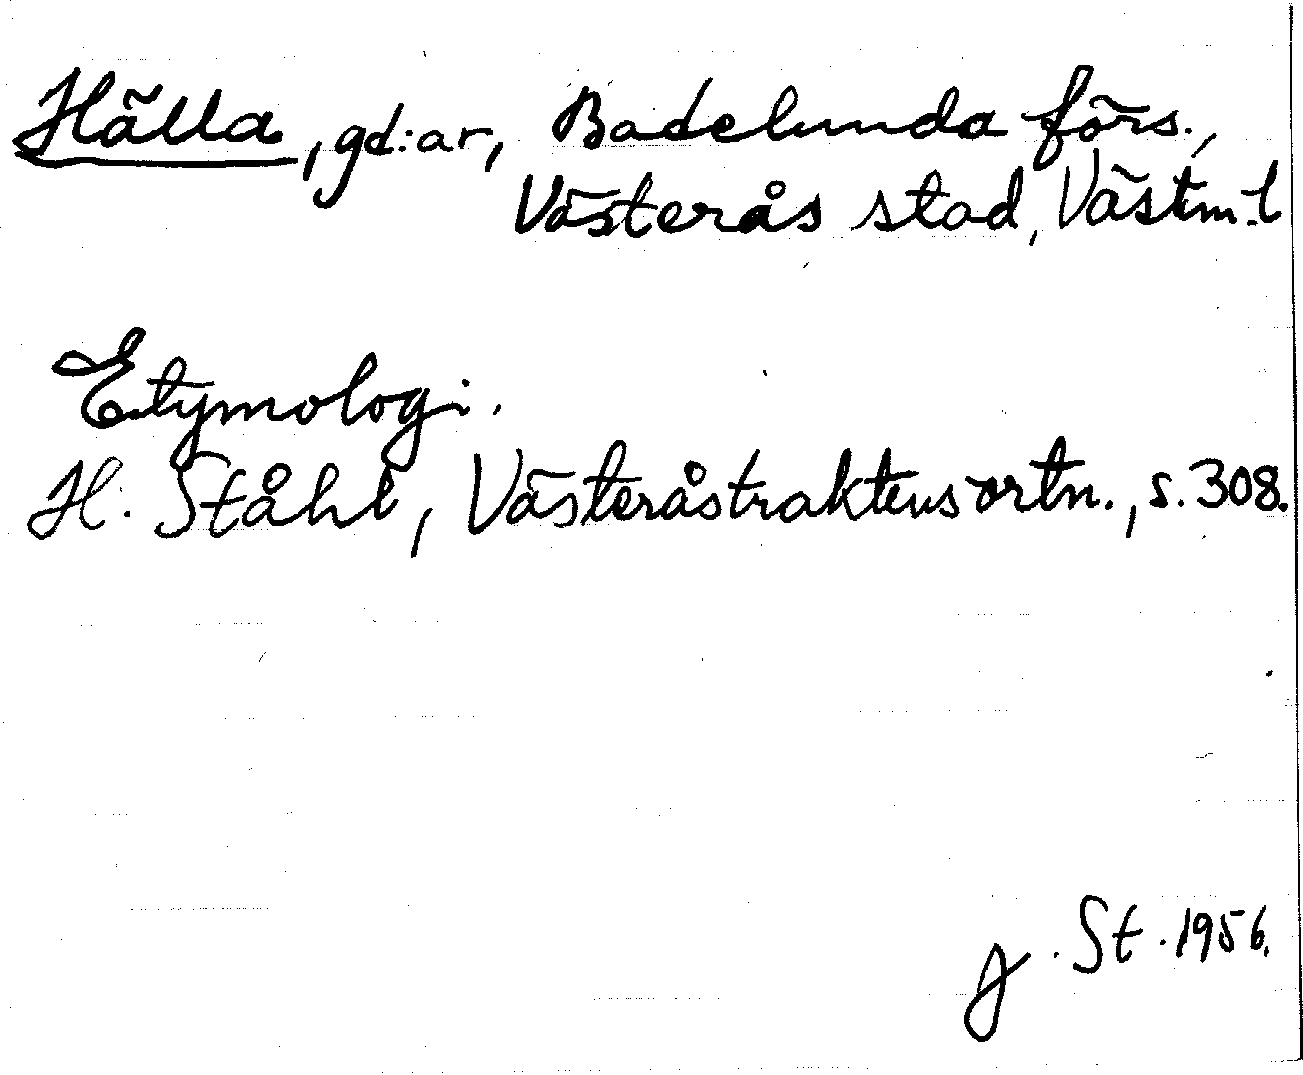 Hälla, gd:ar, Badelunda förs.,
Västerås stad, Västm.l
Etymologi.
H. Ståhl, Västeråstraktens ortn., s. 308.
J. St. 1956.